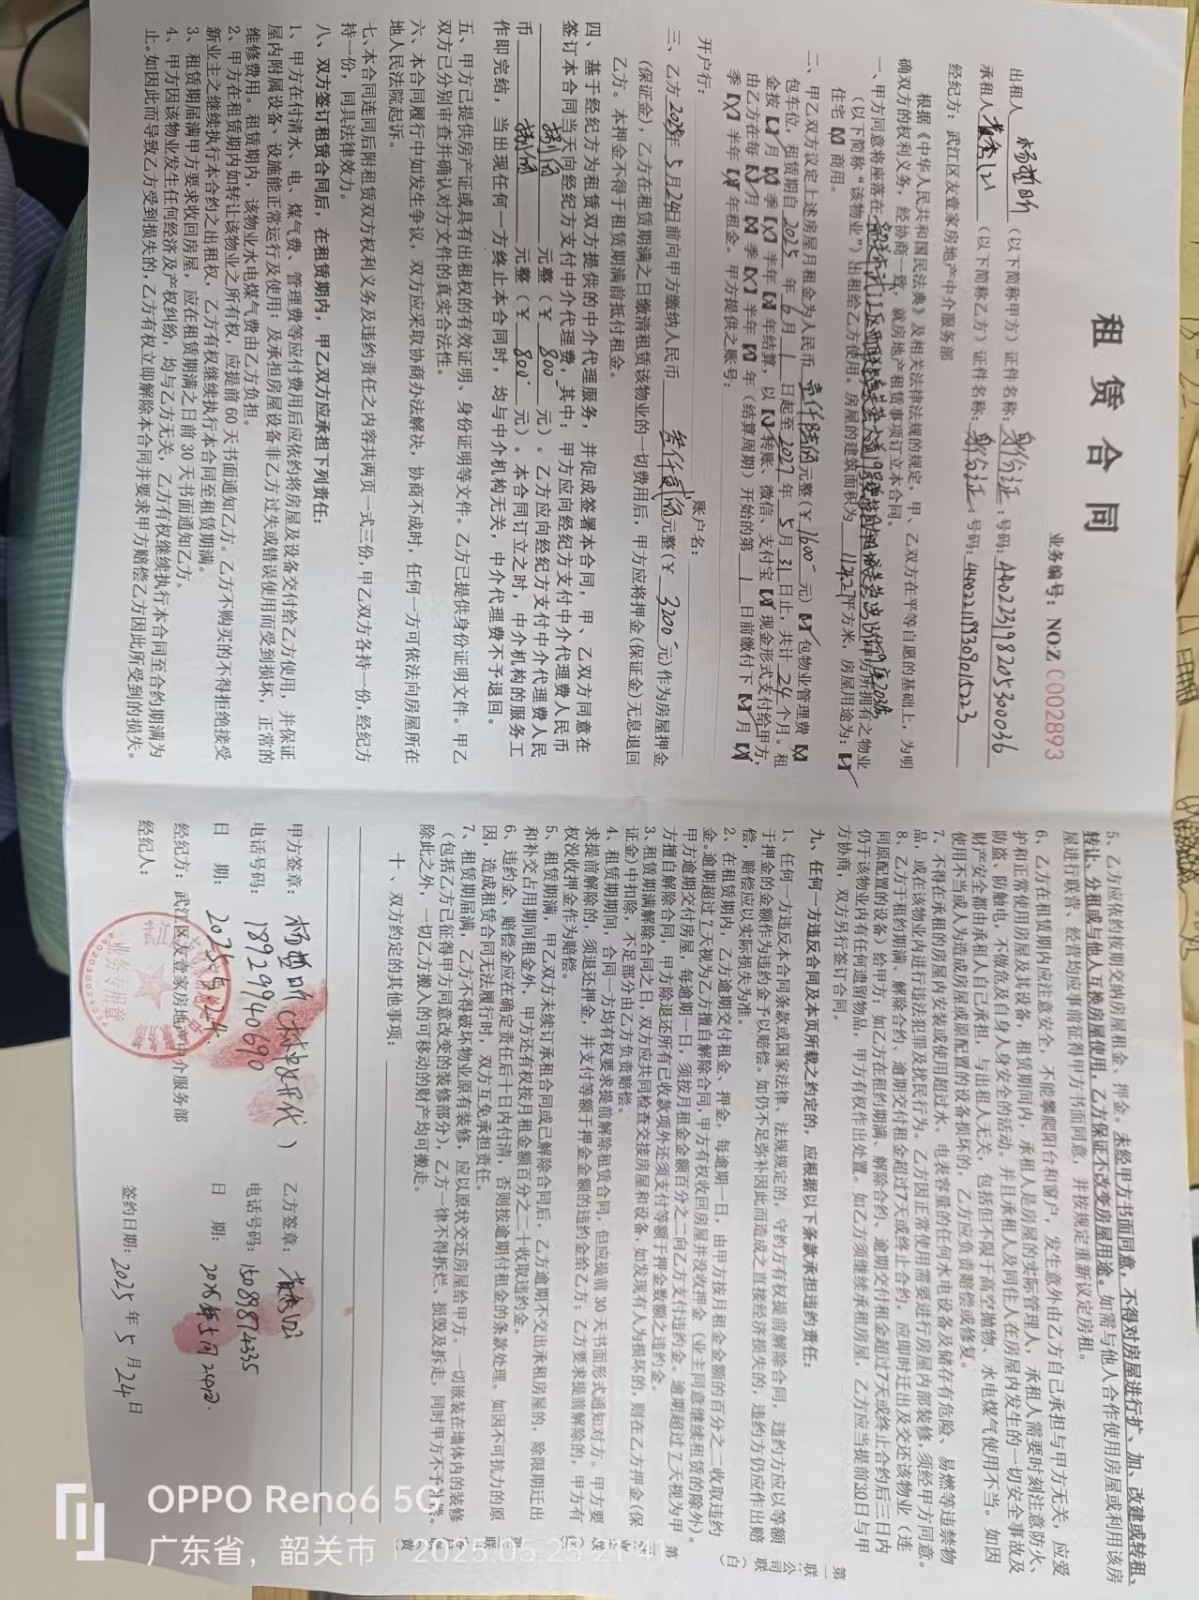 租赁合同
业务编号：NO:Z 0002893
出租人 （以下简称甲方）证件名称：身份证；号码：440223198205300036
承租人 （以下简称乙方）证件名称：身份证；号码：
经纪方：武江区友壹家房地产中介服务部
根据《中华人民共和国民法典》及相关法律法规的规定，甲、乙双方在平等自愿的基础上，为明
确双方的权利义务，经协商一致，就房地产租赁事项订立本合同。
一、甲方同意将座落在 房所拥有之物业
（以下简称“该物业”）出租给乙方使用。房屋的建筑面积为 平方米，房屋用途为：
住宅 商用。
二、甲乙双方议定上述房屋月租金为人民币 元整（￥1600 元） 包物业管理费
包车位，租赁期自 2025 年 6 月 1 日起至 2027 年 5 月 31 日止，共计 24 个月。租
金按 月 季 半年 年结算，以 转账、微信、支付宝 现金形式支付给甲方，
由乙方在每 月 季 半年 年（结算周期）开始的第 1 日前缴付下 月
季 半年 年租金。甲方提供之账号：
开户行： 账户名：
三、乙方 2025年 5 月 24日前向甲方缴纳人民币 叁仟贰佰元整（￥ 3200 元）作为房屋押金
（保证金），乙方在租赁期满之日缴清租赁该物业的一切费用后，甲方应将押金(保证金)无息退回
乙方。本押金不得于租赁期满前抵付租金。
四、基于经纪方为租赁双方提供的中介代理服务，并促成签署本合同，甲、乙双方同意在
签订本合同当天向经纪方支付中介代理费，其中：甲方应向经纪方支付中介代理费人民币
捌佰 元整（￥ 800 元）。乙方应向经纪方支付中介代理费人民
币 捌佰 元整（￥ 800 元）。本合同订立之时，中介机构的服务工
作即完结，当出现任何一方终止本合同时，均与中介机构无关，中介代理费不予退回。
五、甲方已提供房产证或具有出租权的有效证明、身份证明等文件。乙方已提供身份证明文件。甲乙
双方已分别审查并确认对方文件的真实合法性。
六、本合同履行中如发生争议，双方应采取协商办法解决，协商不成时，任何一方可依法向房屋所在
地人民法院起诉。
七、本合同连同后附租赁双方权利义务及违约责任之内容共两页一式三份，甲乙双方各持一份，经纪方
持一份，同具法律效力。
八、双方签订租赁合同后，在租赁期内，甲乙双方应承担下列责任：
1、甲方在付清水、电、煤气费、管理费等应付费用后应依约将房屋及设备交付给乙方使用，并保证
屋内附属设备、设施能正常运行及使用；及承担房屋设备非乙方过失或错误使用而受到损坏，正常的
维修费用。租赁期内，该物业水电煤气费由乙方负担。
2、甲方在租赁期内如转让该物业之所有权，应提前 60 天书面通知乙方。乙方不购买的不得拒绝接受
新业主之继续执行本合约之出租权，乙方有权继续执行本合同至租赁期满。
3、租赁期届满甲方要求收回房屋，应在租赁期满之日前 30 天书面通知乙方。
4、甲方因该物业发生任何经济及产权纠纷，均与乙方无关，乙方有权继续执行本合同至合约期满为
止。如因此而导致乙方受到损失的，乙方有权立即解除本合同并要求甲方赔偿乙方因此所受到的损失。
5、乙方应依约按期交纳房屋租金、押金。未经甲方书面同意，不得对房屋进行扩、加、改建或转租、
转让、分租或与他人互换房屋使用，乙方保证不改变房屋用途。如需与他人合作使用房屋或利用该房
屋进行联营、经营均应事前征得甲方书面同意，并按规定重新议定房租。
6、乙方在租赁期内应注意安全，不能攀爬阳台和窗户，发生意外由乙方自己承担与甲方无关，应爱
护和正常使用房屋及其设备，租赁期间内，承租人是房屋的实际管理人，承租人需要时刻注意防火、
防盗、防触电，不做危及自身人身安全的活动。并且承租人及同住人在房屋内发生的一切安全事故及
财产安全都由承租人自己承担，与出租人无关，包括但不限于高空抛物、水电煤气使用不当。如因
使用不当或人为造成房屋或原配置的设备损坏的，乙方应负责赔偿或修复。
7、不得在承租的房屋内安装或使用超过水、电表容量的任何水电设备及储存有危险、易燃等违禁物
品，或在该物业内进行违法犯罪及扰民行为。乙方因正常使用需要进行房屋内部装修，须经甲方同意。
8、乙方于租约期满、解除合约、逾期交付租金超过7天或终止合约，应即时迁出及交还该物业（连
同原配置的设备）给甲方；如乙方在租约期满，解除合约、逾期交付租金超过7天或终止合约后三日内
仍于该物业内有任何遗留物品，甲方有权作出处置。如乙方须继续承租房屋，乙方应当提前30日与甲
方协商，双方另行签订合同。
九、任何一方违反合同及本页所载之约定的，应根据以下条款承担违约责任：
1、任何一方违反本合同条款或国家法律、法规规定的，守约方有权提前解除合同，违约方应以等额
于押金的金额作为违约金予以赔偿。如仍不足弥补因此而造成之直接经济损失的，违约方仍应作出赔
偿，赔偿应以实际损失为准。
2、在租赁期内，乙方逾期交付租金、押金，每逾期一日，由甲方按月租金金额的百分之二收取违约
金。逾期超过 7 天视为乙方擅自解除合同，甲方有权收回房屋并没收押金（业主同意继续租赁的除外）。
甲方逾期交付房屋，每逾期一日，须按月租金金额百分之二向乙方支付违约金。逾期超过 7 天视为甲
方擅自解除合同，甲方除退还所有已收款项外还须支付等额于押金数额之违约金。
3、租赁期满解除合同之日，双方应共同检查交接房屋和设备，如发现有人为损坏的，则在乙方押金（保
证金）中扣除，不足部分由乙方负责赔偿。
4、租赁期期间，合同一方均有权要求提前解除租赁合同，但应提前 30 天书面形式通知对方。甲方要
求提前解除的，须退还押金，并支付等额于押金金额的违约金给乙方；乙方要求提前解除的，甲方有
权没收押金作为赔偿。
5、租赁期满，甲乙双方未续订承租合同或已解除合同后，乙方逾期不交出承租房屋的，除限期迁出
和补交占用期间租金外，甲方还有权按月租金额百分之二十收取违约金。
6、违约金、赔偿金应在确定责任后十日内付清，否则按逾期付租金的条款处理。如因不可抗力的原
因，造成租赁合同无法履行时，双方互免承担责任。
7、租赁期届满，乙方不得破坏物业原有装修，应以原状交还房屋给甲方。一切嵌装在墙体内的装修
（包括乙方已征得甲方同意改变的装修部分），乙方一律不得拆烂、损毁及拆走，同时甲方不予补偿。
除此之外，一切乙方搬入的可移动的财产均可搬走。
十、双方约定的其他事项：
甲方签章： 乙方签章：
电话号码：18929940690 电话号码：15089874335
日 期：2025.5.24 日 期：2025年5月24日
经纪方：武江区友壹家房地产中介服务部
经纪人： 签约日期：2025 年 5 月 24 日
业务专用章
OPPO Reno6 5G
广东省，韶关市 2025.05.25 21:41